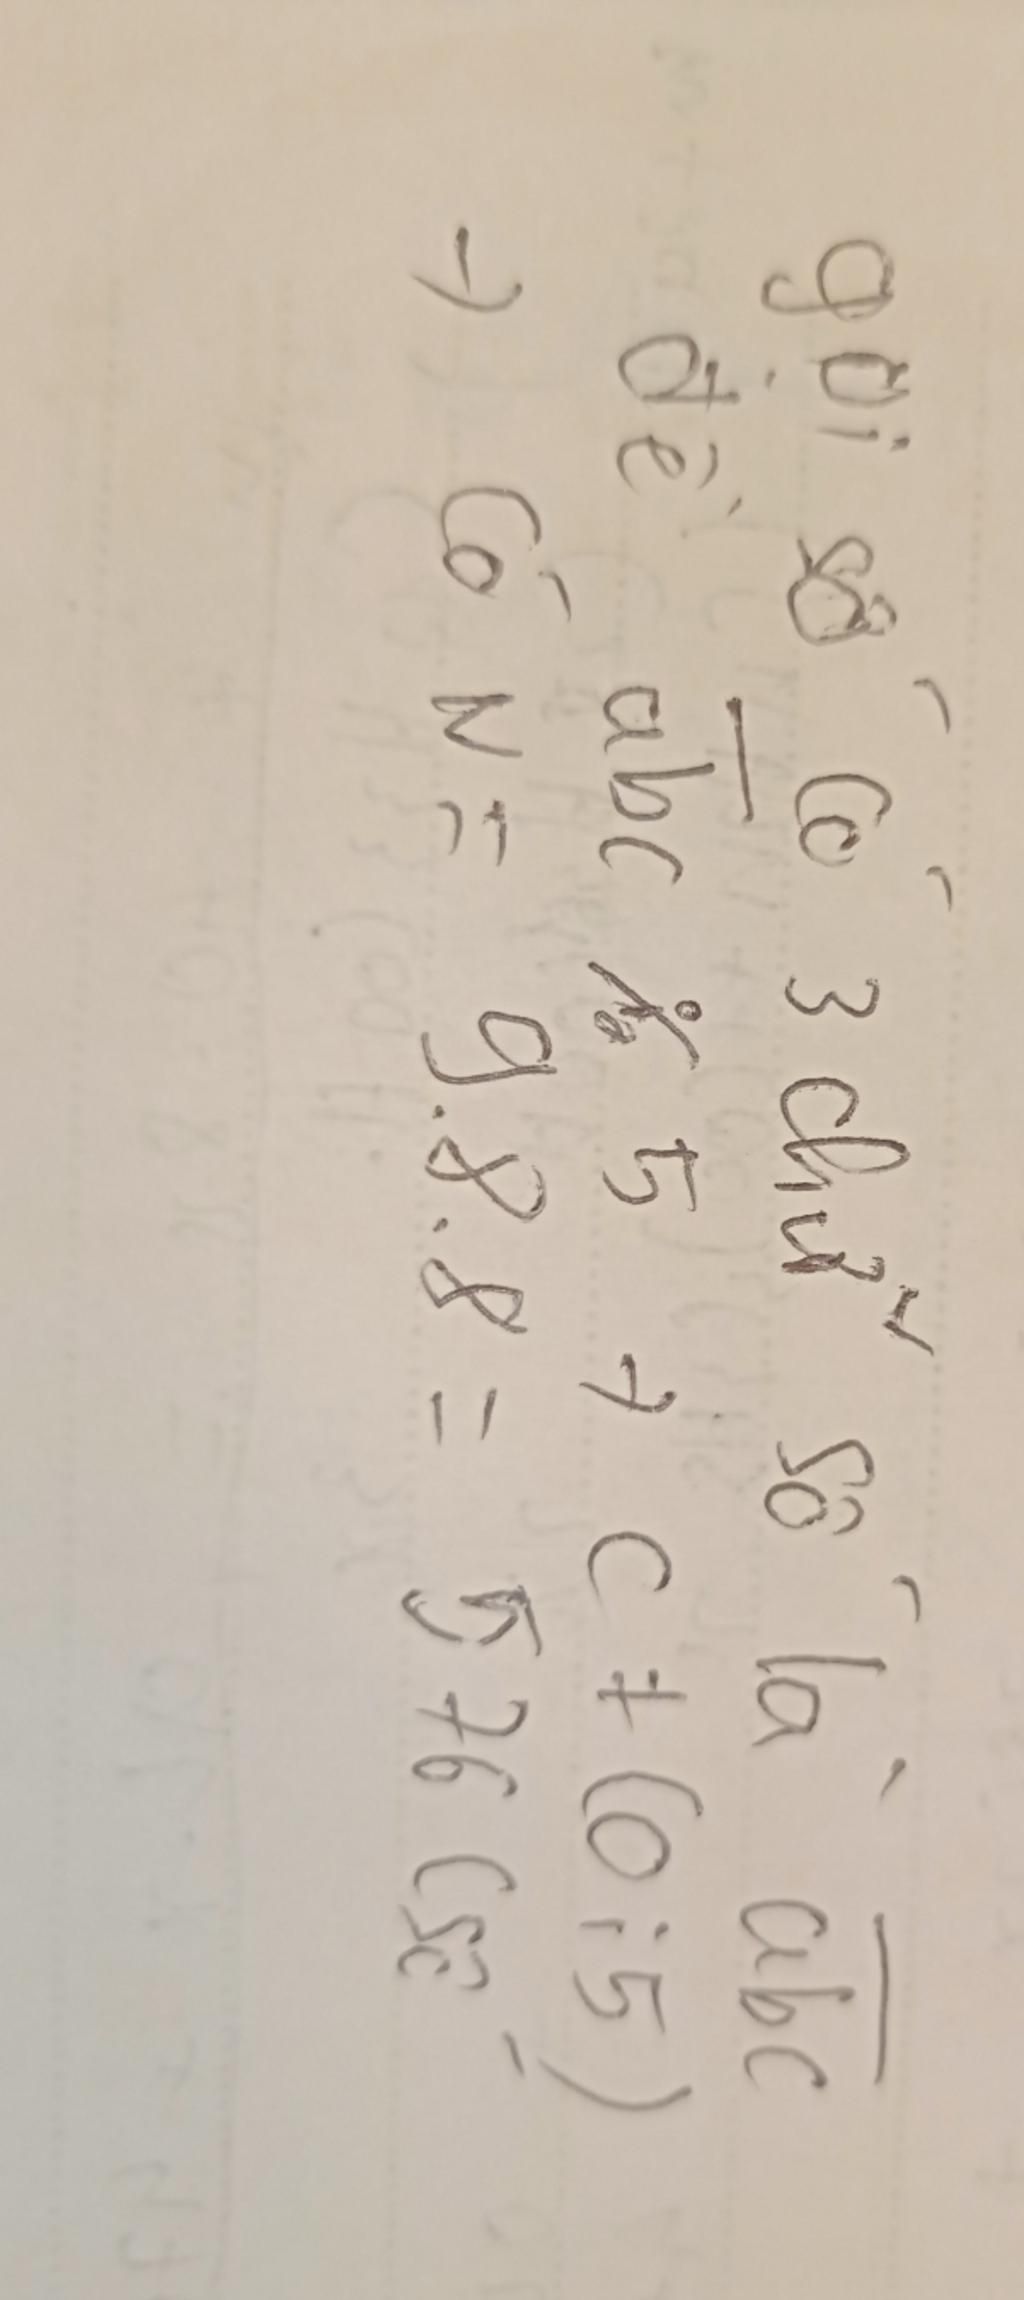 gọi số có 3 chữ số là abc
để abc ⋮̸ 5 → c ≠ (0;5)
→ Có N = 9.8.8 = 576 (số